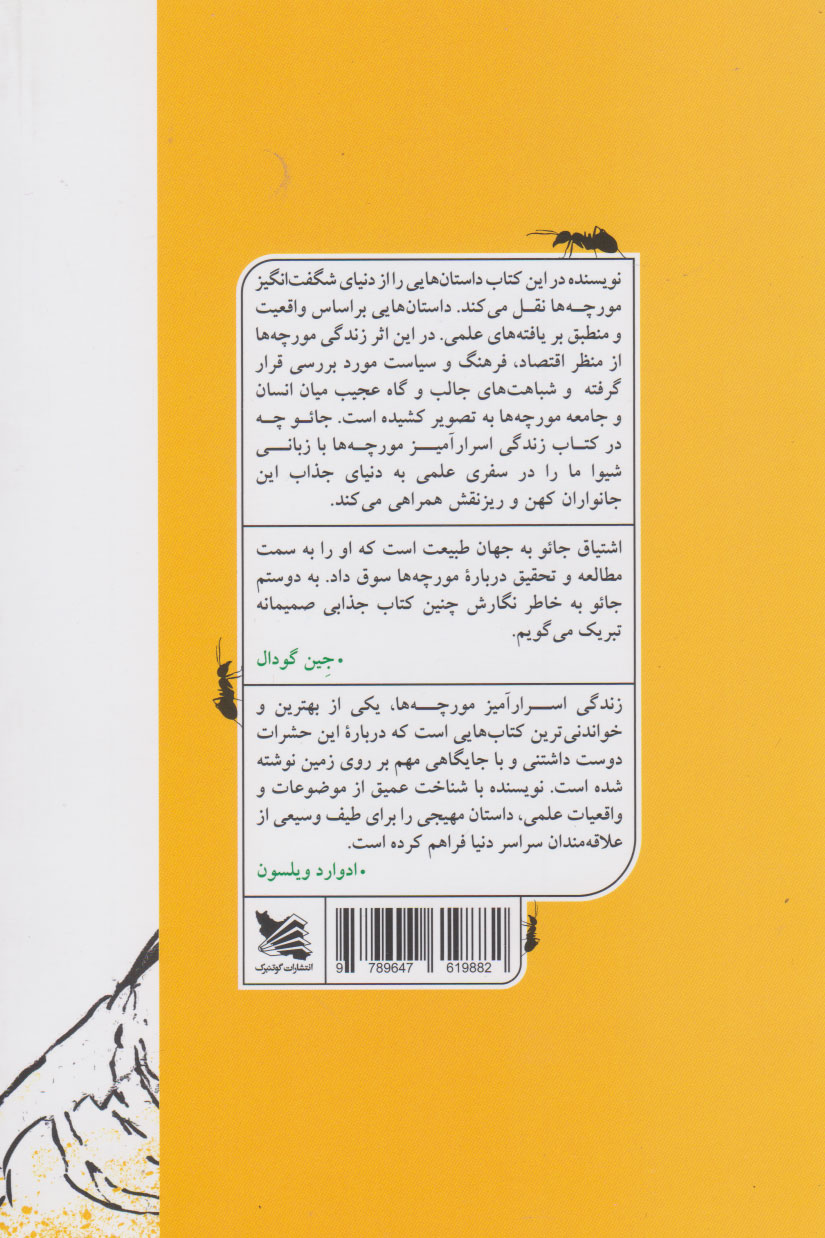 نویسنده در این کتاب داستان‌هایی را از دنیای شگفت‌انگیز
مورچه‌ها نقل می‌کند. داستان‌هایی براساس واقعیت
و منطبق بر یافته‌های علمی. در این اثر زندگی مورچه‌ها
از منظر اقتصاد، فرهنگ و سیاست مورد بررسی قرار
گرفته و شباهت‌های جالب و گاه عجیب میان انسان
و جامعه مورچه‌ها به تصویر کشیده است. جائو چه
در کتاب زندگی اسرارآمیز مورچه‌ها با زبانی
شیوا ما را در سفری علمی به دنیای جذاب این
جانواران کهن و ریزنقش همراهی می‌کند.
اشتیاق جائو به جهان طبیعت است که او را به سمت
مطالعه و تحقیق دربارهٔ مورچه‌ها سوق داد. به دوستم
جائو به خاطر نگارش چنین کتاب جذابی صمیمانه
تبریک می‌گویم.
• جِین گودال
زندگی اسرارآمیز مورچه‌ها، یکی از بهترین و
خواندنی‌ترین کتاب‌هایی است که دربارهٔ این حشرات
دوست داشتنی و با جایگاهی مهم بر روی زمین نوشته
شده است. نویسنده با شناخت عمیق از موضوعات و
واقعیات علمی، داستان مهیجی را برای طیف وسیعی از
علاقه‌مندان سراسر دنیا فراهم کرده است.
• ادوارد ویلسون
انتشارات گوتنبرگ
9 789647 619882